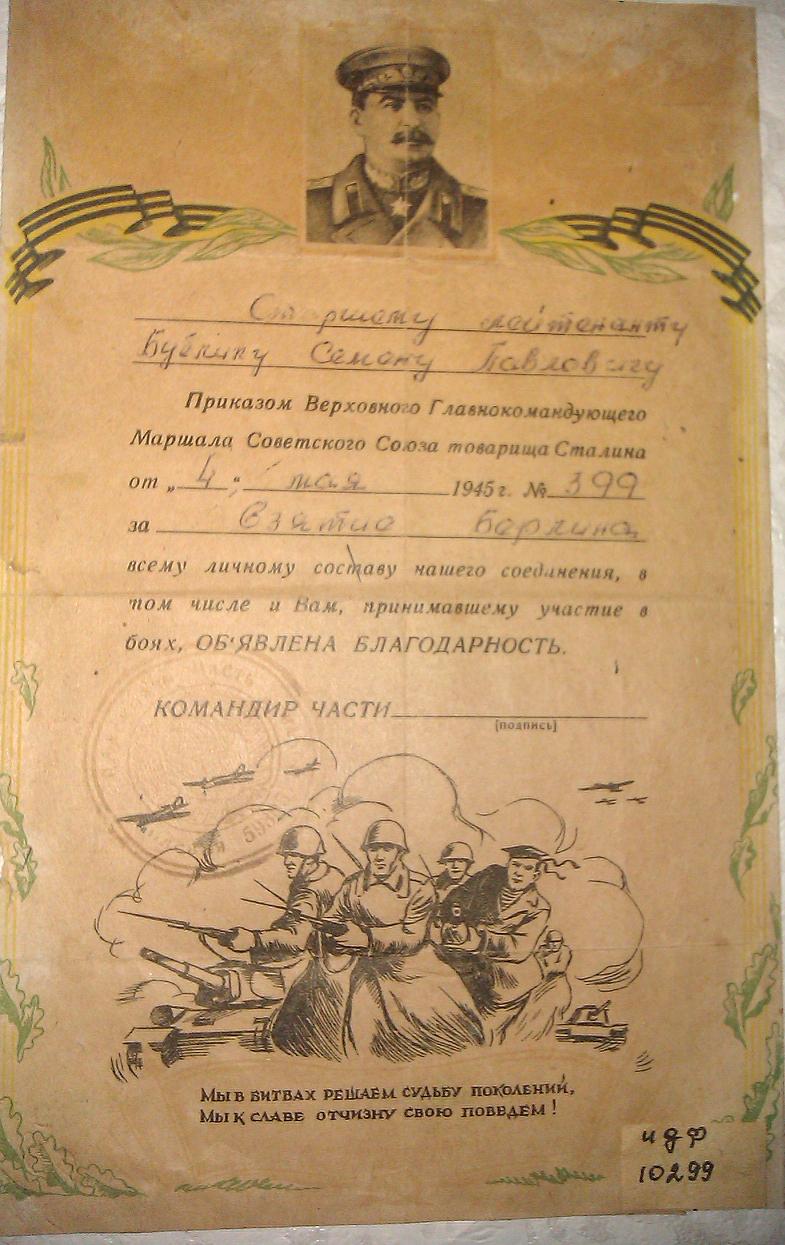 Старшему лейтенанту
Семену Павловичу
Приказом Верховного Главнокомандующего
Маршала Советского Союза товарища Сталина
от „4“ мая 1945 г. № 399
за Взятие Берлина
всему личному составу нашего соединения, в
том числе и Вам, принимавшему участие в
боях, ОБ'ЯВЛЕНА БЛАГОДАРНОСТЬ.
КОМАНДИР ЧАСТИ
(подпись)
МЫ В БИТВАХ РЕШАЕМ СУДЬБУ ПОКОЛЕНИЙ,
МЫ К СЛАВЕ ОТЧИЗНУ СВОЮ ПОВЕДЕМ!
идф
10299